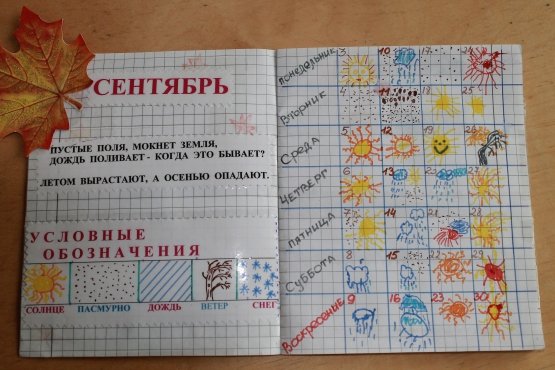 СЕНТЯБРЬ
ПУСТЫЕ ПОЛЯ, МОКНЕТ ЗЕМЛЯ,
ДОЖДЬ ПОЛИВАЕТ - КОГДА ЭТО БЫВАЕТ?
ЛЕТОМ ВЫРАСТАЮТ, А ОСЕНЬЮ ОПАДАЮТ.
УСЛОВНЫЕ
ОБОЗНАЧЕНИЯ
СОЛНЦЕ ПАСМУРНО ДОЖДЬ ВЕТЕР СНЕГ
ПОНЕДЕЛЬНИК 3 10 17 24
Вторник 4 11 18 25
Среда 5 12 19 26
ЧЕТВЕРГ 6 13 27
ПЯТНИЦА 7 14 21 28
Суббота 8 15 22 29
Воскресенье 9 16 23 30